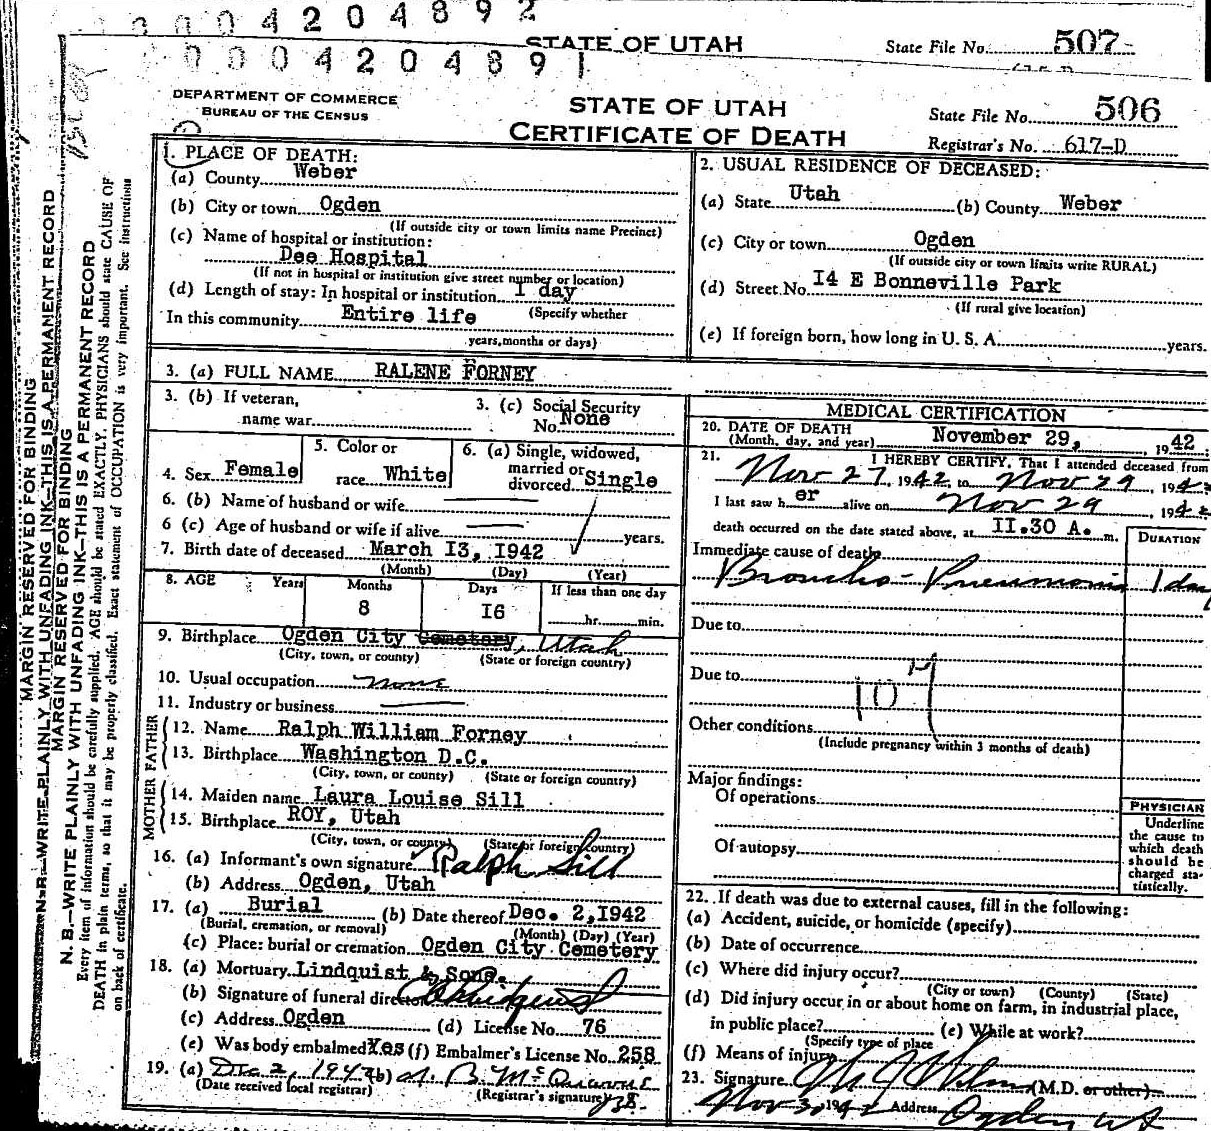 00042048 92
STATE OF UTAH
State File No. 507
000420489 1
DEPARTMENT OF COMMERCE
BUREAU OF THE CENSUS
STATE OF UTAH
CERTIFICATE OF DEATH
State File No. 506
Registrar's No. 617-D
1. PLACE OF DEATH:
(a) County Weber
(b) City or town Ogden
(If outside city or town limits name Precinct)
(c) Name of hospital or institution:
Dee Hospital
(If not in hospital or institution give street number or location)
(d) Length of stay: In hospital or institution 1 day
(Specify whether
In this community Entire life
years, months or days)
2. USUAL RESIDENCE OF DECEASED:
(a) State Utah (b) County Weber
(c) City or town Ogden
(If outside city or town limits write RURAL)
(d) Street No. I4 E Bonneville Park
(If rural give location)
(e) If foreign born, how long in U. S. A. years.
3. (a) FULL NAME RALENE FORNEY
3. (b) If veteran,
name war
3. (c) Social Security
No. None
4. Sex Female
5. Color or
race White
6. (a) Single, widowed,
married or
divorced Single
6. (b) Name of husband or wife
6 (c) Age of husband or wife if alive years.
7. Birth date of deceased March I3, 1942
(Month) (Day) (Year)
8. AGE Years Months Days If less than one day
8 I6 hr. min.
9. Birthplace Ogden City Cemetery, Utah
(City, town, or county) (State or foreign country)
10. Usual occupation none
11. Industry or business
FATHER
12. Name Ralph William Forney
13. Birthplace Washington D.C.
(City, town, or county) (State or foreign country)
MOTHER
14. Maiden name Laura Louise Sill
15. Birthplace ROY, Utah
(City, town, or county) (State or foreign country)
16. (a) Informant's own signature Ralph Sill
(b) Address Ogden, Utah
17. (a) Burial (b) Date thereof Dec. 2, 1942
(Burial, cremation, or removal) (Month) (Day) (Year)
(c) Place: burial or cremation Ogden City Cemetery
18. (a) Mortuary Lindquist & Sons.
(b) Signature of funeral director
(c) Address Ogden (d) License No. 76
(e) Was body embalmed Yes (f) Embalmer's License No. 258
19. (a) Dec 2, 1942 (b)
(Date received local registrar) (Registrar's signature)
MEDICAL CERTIFICATION
20. DATE OF DEATH
(Month, day, and year) November 29, 1942
21. I HEREBY CERTIFY, That I attended deceased from
Nov 27, 1942, to Nov 29, 194
I last saw her alive on Nov 29, 194
death occurred on the date stated above, at II.30 A. m.
DURATION
Immediate cause of death
Broncho-Pneumonia 1 day
Due to
Due to
107
Other conditions
(Include pregnancy within 3 months of death)
Major findings:
Of operations
Of autopsy
PHYSICIAN
Underline
the cause to
which death
should be
charged sta-
tistically.
22. If death was due to external causes, fill in the following:
(a) Accident, suicide, or homicide (specify)
(b) Date of occurrence
(c) Where did injury occur?
(City or town) (County) (State)
(d) Did injury occur in or about home on farm, in industrial place,
in public place? (e) While at work?
(Specify type of place
(f) Means of injury
23. Signature (M.D. or other)
Nov 3 Address Ogden Ut
MARGIN RESERVED FOR BINDING
N. B.—WRITE PLAINLY WITH UNFADING INK—THIS IS A PERMANENT RECORD
MARGIN RESERVED FOR BINDING
N. B.—WRITE PLAINLY WITH UNFADING INK—THIS IS A PERMANENT RECORD
Every item of information should be carefully supplied. AGE should be stated EXACTLY. PHYSICIANS should state CAUSE OF
DEATH in plain terms, so that it may be properly classified. Exact statement of OCCUPATION is very important. See instructions
on back of certificate.